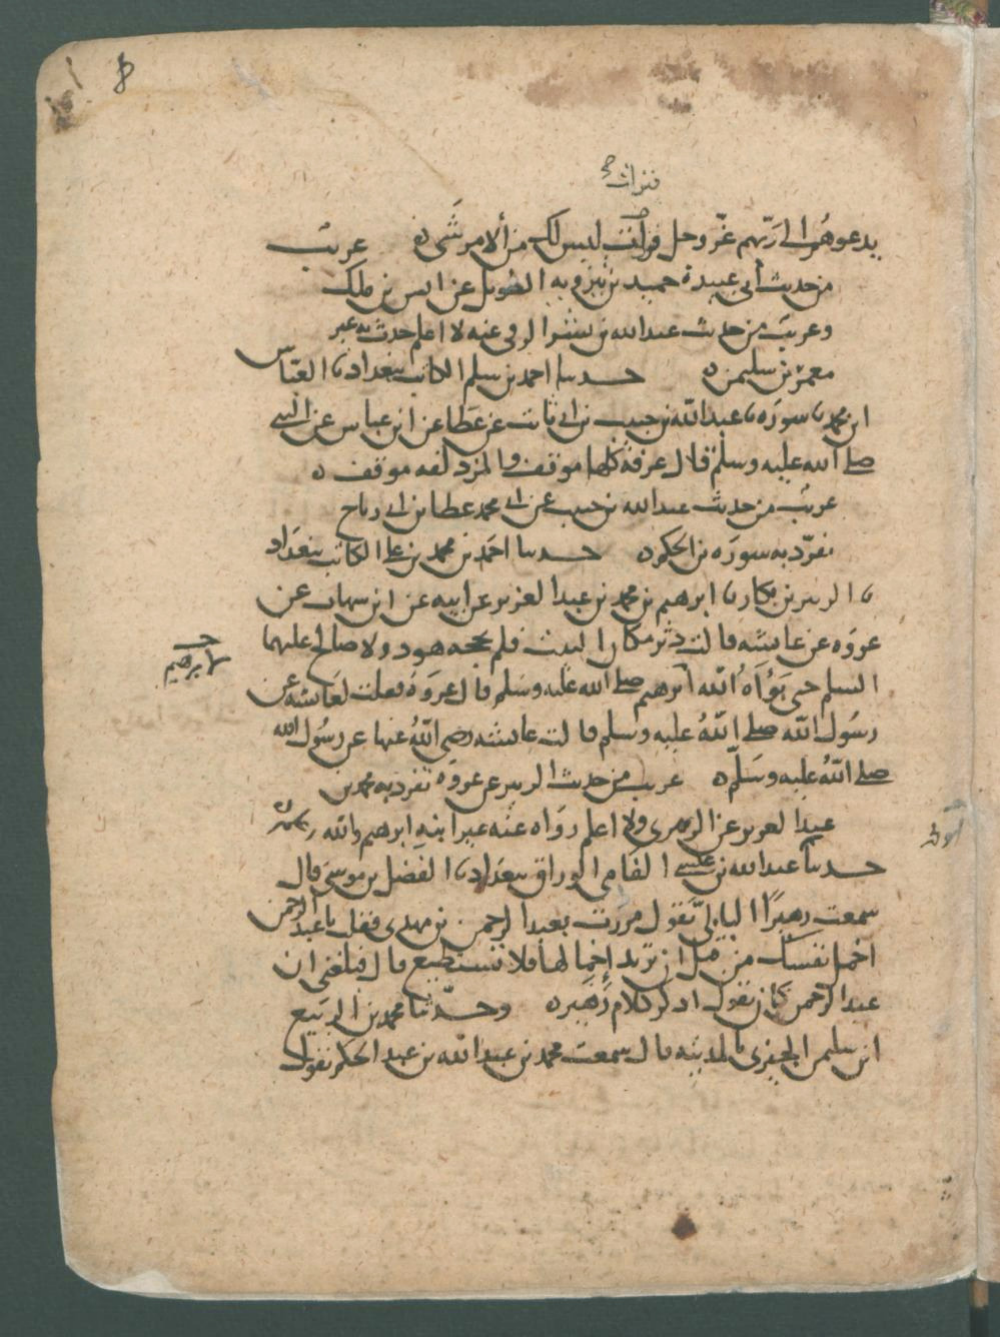 فنزلت صح
يدعوهم إلى ربهم عز وجل فنزلت ليس لك من الأمر شيء ه غريب
من حديث أبي عبيدة حميد بن تيرويه الطويل عن أنس بن ملك
وغريب من حديث عبد الله بن عنه لا اعلم حدث به غير
معمر بن سليمن ه حدثنا احمد بن سلم الكاتب ببغداد نا العباس
ابن محمد نا سورة نا عبد الله بن حبيب بن ابي ثابت عن عطا عن ابن عباس عن النبي
صلى الله عليه وسلم قال عرفة كلها موقف والمزدلفه موقف ه
غريب من حديث عبد الله بن حبيب عن ابي محمد عطا بن ابي رباح
تفرد به سورة بن الحكم ه حدثنا احمد بن محمد بن علي الكاتب ببغداد
نا الزبير بن بكار نا ابرهيم بن محمد بن عبد العزيز عن ابيه عن ابن شهاب عن
عروه عن عائشه قالت دثر مكان البيت فلم يحجه هود ولا صالح عليهما
السلم حتى بوأه الله ابرهيم صلى الله عليه وسلم قال عروة فقلت لعائشه عن
رسول الله صلى الله عليه وسلم قالت عائشه رضي الله عنها عن رسول الله
صلى الله عليه وسلم ه غريب من حديث الزبير عن عروه تفرد به محمد بن
عبد العزيز عن الزهري ولا اعلم رواه عنه غير ابنه ابرهيم والله
حدثنا عبد الله بن عيسى الفامي الوراق ببغداد نا الفضل بن موسى قال
سمعت زهيرا البابي يقول مررت بعبد الرحمن بن مهدي فقلت يا عبد الرحمن
اخمل نفسك من قبل ان تريد اخمالها فلا تستطيع قال فبلغني ان
عبد الرحمن كان يقول اذكر كلام زهير ه وحدثنا محمد بن الربيع
ابن سليمن الجيزي بالمدينه قال سمعت محمد بن عبد الله بن عبد الحكم يقول
ابرهيم